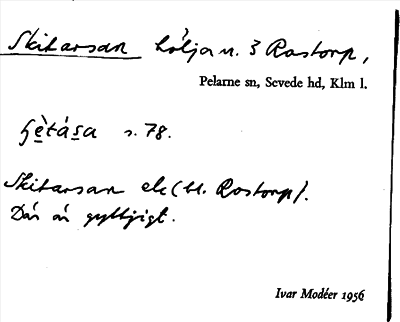 Skitarsan hölja n. 3 Rostorp,
Pelarne sn, Sevede hd, Klm l.
s. 78.
Skitarsan ek (bl. Rostorp).
Där är gyttjigt.
Ivar Modéer 1956